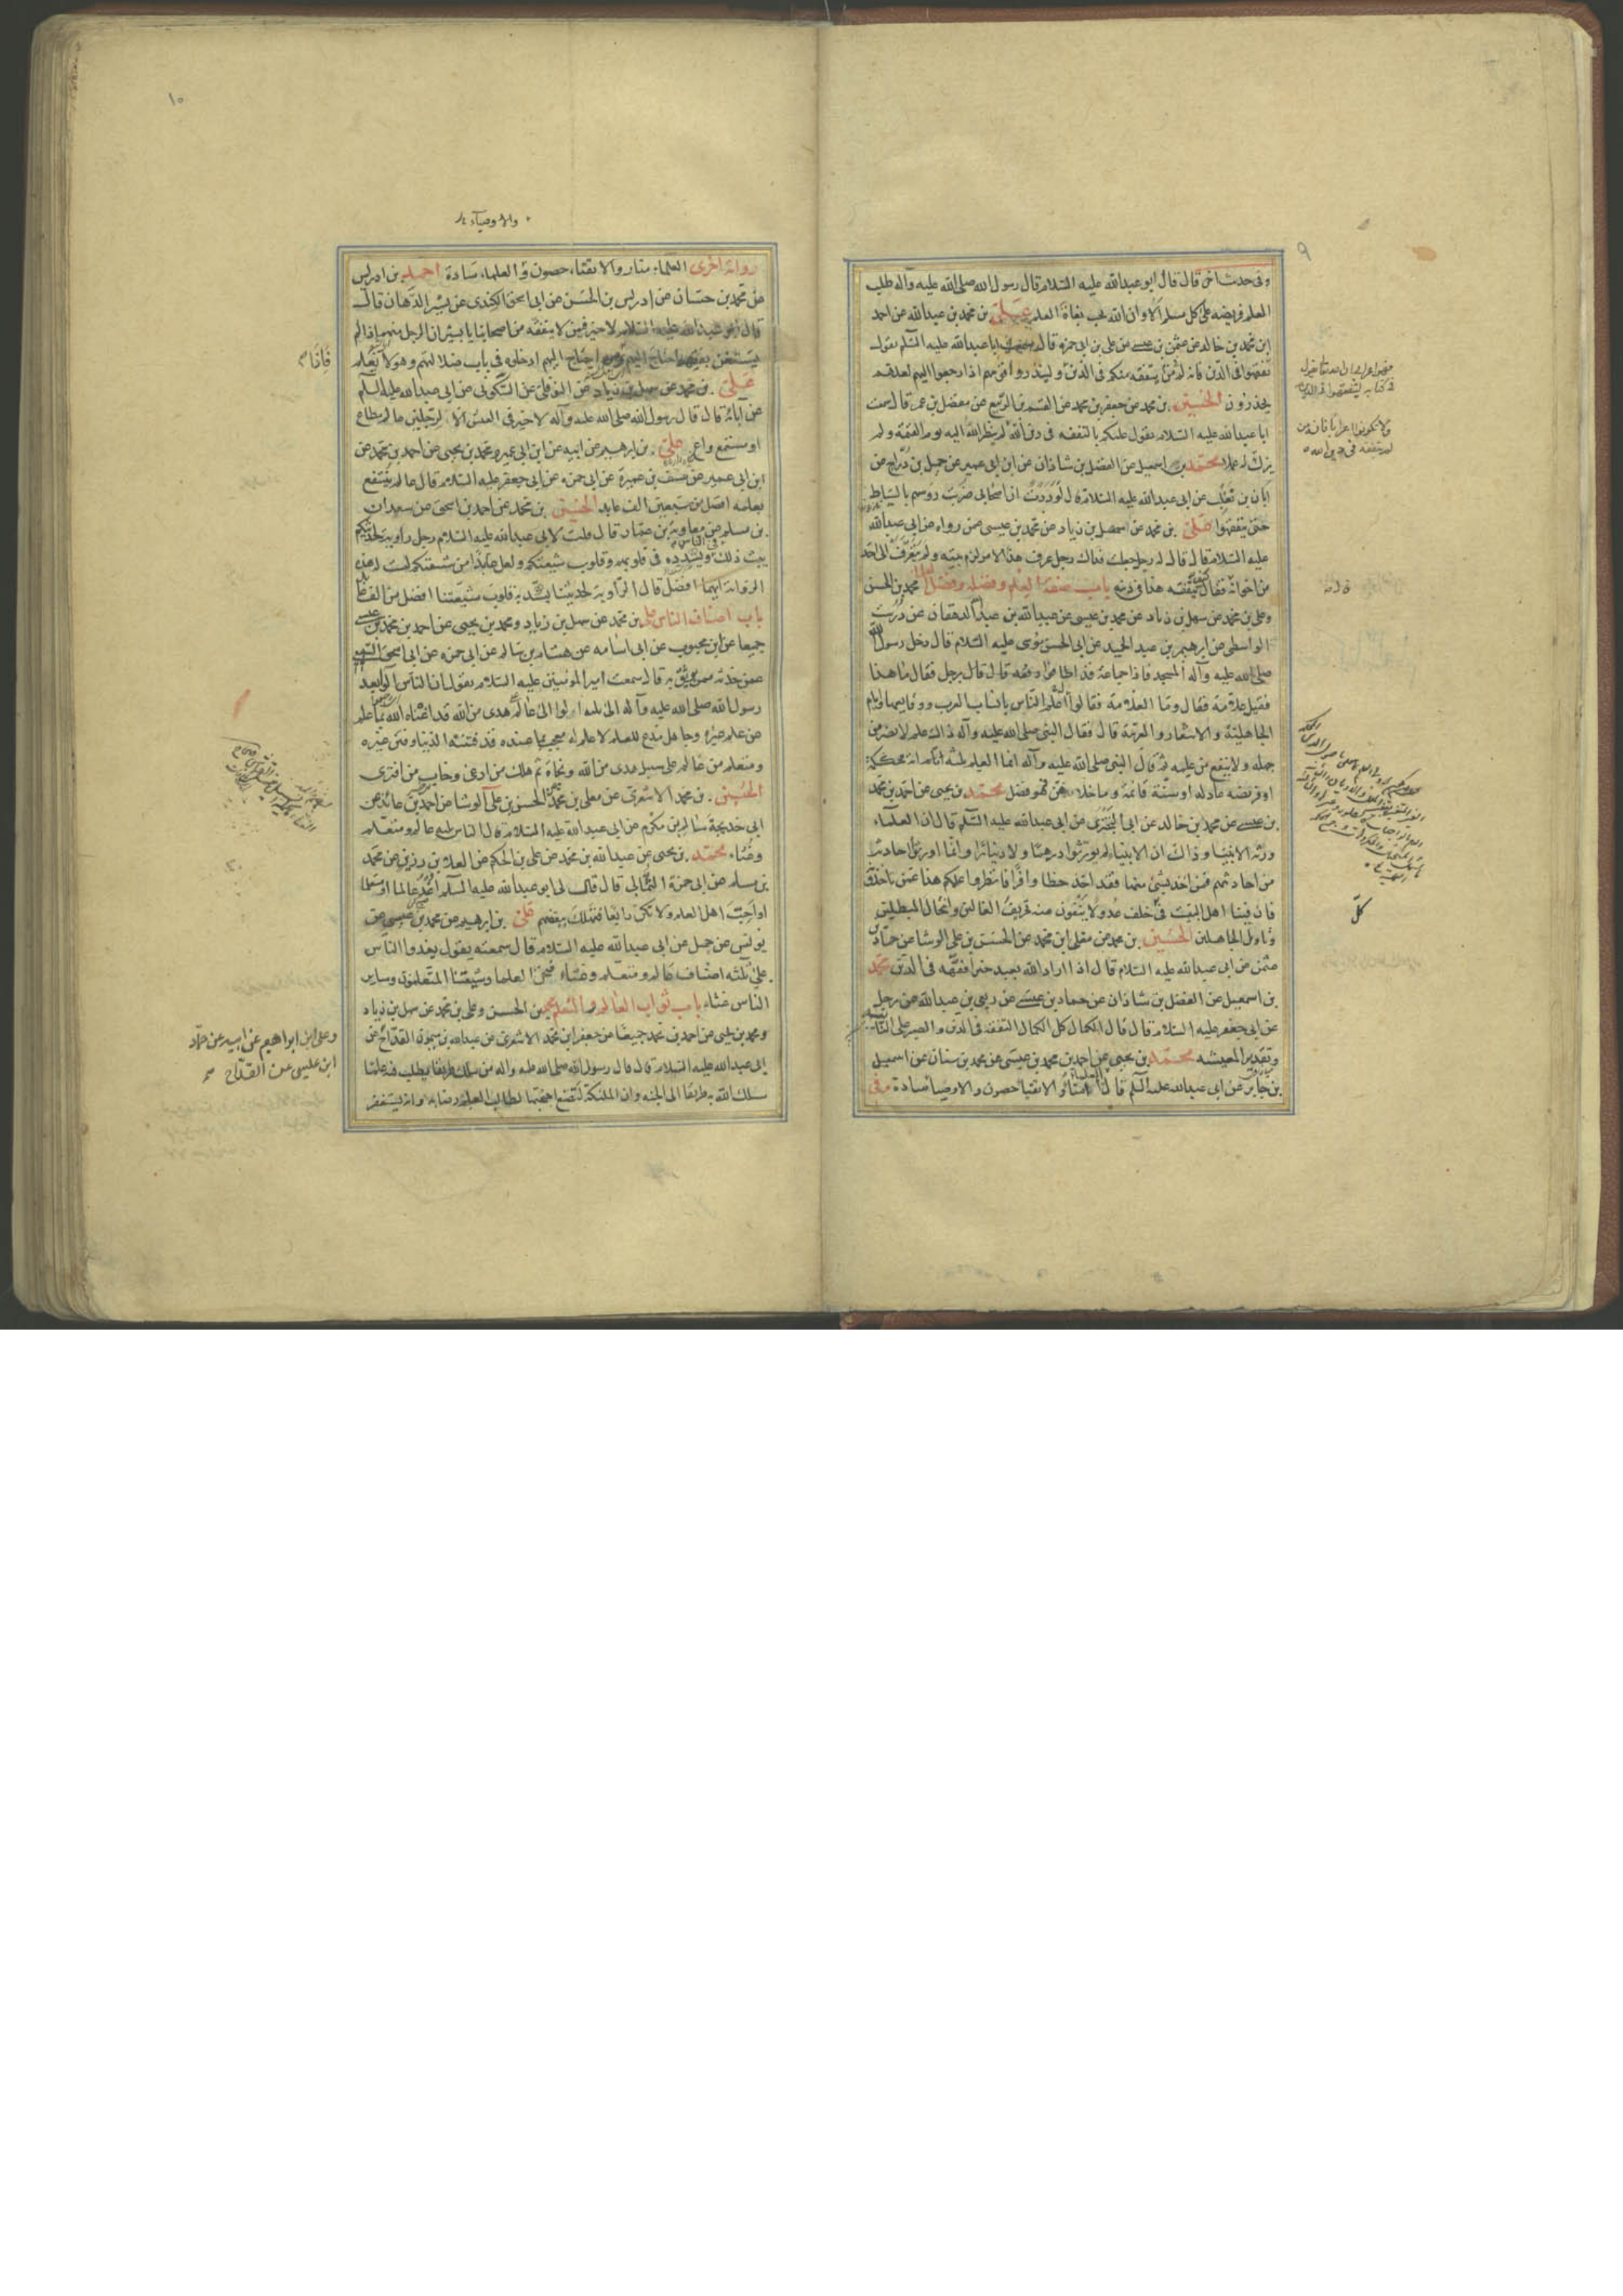 ٩
وفى حديث آخر قال قال ابو عبدالله عليه السلام قال رسول الله صلى الله عليه وآله طلب
العلم فريضة على كل مسلم الا وان الله يحب بغاة العلم على بن محمد بن عبدالله عن احمد
ابن محمد بن خالد عن عثمن بن عيسى عن على بن ابى حمزه قال سمعت ابا عبدالله عليه السلم يقول
تفقهوا فى الدين فانه من لم يتفقه منكم فى الدين ولينذروا قومهم اذا رجعوا اليهم لعلهم
يحذرون الحسين بن محمد عن جعفر بن محمد عن القسم بن الربيع عن مفضل بن عمر قال سمعت
ابا عبدالله عليه السلام يقول عليكم بالتفقه فى دين الله لم ينظر الله اليه يوم القيمة ولم
يزك له عملا محمد بن اسمعيل عن الفضل بن شاذان عن ابن ابى عمير عن جميل بن دراج عن
ابان بن تغلب عن ابى عبدالله عليه السلام قال لوددت ان اصحابى ضربت رؤسهم بالسياط
حتى يتفقهوا على بن محمد عن سهل بن زياد عن محمد بن عيسى عمن رواه عن ابى عبدالله
عليه السلام قال قال له رجل جعلت فداك رجل عرف هذا الامر لزم بيته ولم يتعرف الى احد
من اخوانه فقال كيف يتفقه هذا فى دينه باب صفة العلم وفضله وفضل محمد بن الحسن
وعلى بن محمد عن سهل بن زياد عن محمد بن عيسى عن عبيدالله بن عبدالله الدهقان عن درست
الواسطى عن ابرهيم بن عبد الحميد عن ابى الحسن موسى عليه السلام قال دخل رسول الله
صلى الله عليه وآله المسجد فاذا جماعة قد اطافوا برجل فقال ما هذا
فقيل علامة فقال وما العلامة فقالوا اعلم الناس بانساب العرب ووقايعها وايام
الجاهلية والاشعار والعربية قال فقال النبى صلى الله عليه وآله ذاك علم لا يضر من
جهله ولا ينفع من علمه ثم قال النبى صلى الله عليه وآله انما العلم ثلثة آية محكمة
او فريضه عادله او سنة قائمة وما خلاهن فهو فضل محمد بن يحيى عن احمد بن محمد
بن عيسى عن محمد بن خالد عن ابى البخترى عن ابى عبدالله عليه السلم قال ان العلماء
ورثة الانبياء وذاك ان الانبياء لم يورثوا درهما ولا دينارا وانما اورثوا احاديث
من احاديثهم فمن اخذ بشئ منها فقد اخذ حظا وافرا فانظروا علمكم هذا عمن تاخذونه
فان فينا اهل البيت فى كل خلف عدولا ينفون عنه تحريف الغالين وانتحال المبطلين
وتاويل الجاهلين الحسين بن محمد عن معلى ابن محمد عن الحسن بن على الوشا عن حماد بن
عثمن عن ابى عبدالله عليه السلام قال اذا اراد الله بعبد خيرا فقهه فى الدين محمد
بن اسمعيل عن الفضل بن شاذان عن حماد بن عيسى عن ربعى بن عبدالله عن رجل
عن ابى جعفر عليه السلام قال قال الكمال كل الكمال التفقه فى الدين والصبر على النائبة
وتقدير المعيشه محمد بن يحيى عن احمد بن محمد بن عيسى عن محمد بن سنان عن اسمعيل
بن جابر عن ابى عبدالله عليه السلم قال العلماء امناء والاتقيا حصون والاوصيا سادة وفى
ولا تكونوا اعرابا فان من
لم يتفقه فى دين الله
كل
١٠
والاوصياء
رواية اخرى العلماء منار والاتقياء حصون والعلماء سادة احمد بن ادريس
عن محمد بن حسان عن ادريس بن الحسن عن ابى اسحق الكندى عن بشير الدهان قال
قال ابو عبدالله عليه السلام لا خير فيمن لا يتفقه من اصحابنا يا بشير ان الرجل منهم اذا لم
يستغن بفقهه احتاج اليهم احتاج اليهم ادخلوه فى باب ضلالتهم وهو لا يعلم
فاذا
على بن محمد عن سهل بن زياد عن النوفلى عن السكونى عن ابى عبدالله عليه السلم
عن آبائه قال قال رسول الله صلى الله عليه وآله لا خير فى العيش الا لرجلين عالم مطاع
او مستمع واع على بن ابرهيم عن ابيه عن ابن ابى عمير ومحمد بن يحيى عن احمد بن محمد عن
ابن ابى عمير عن سيف بن عميرة عن ابى حمزه عن ابى جعفر عليه السلام قال عالم ينتفع
بعلمه افضل من سبعين الف عابد الحسين بن محمد عن احمد بن اسحق عن سعدان
بن مسلم عن معاوية بن عمار قال قلت لابى عبدالله عليه السلام رجل راوية لحديثكم
يبث ذلك فى الناس ويشدده فى قلوبهم وقلوب شيعتكم ولعل عابدا من شيعتكم ليست له هذه
الرواية ايهما افضل قال الراوية لحديثنا يشد به قلوب شيعتنا افضل من الف عابد
باب اصناف الناس على بن محمد عن سهل بن زياد ومحمد بن يحيى عن احمد بن محمد بن عيسى
جميعا عن ابن محبوب عن ابى اسامه عن هشام بن سالم عن ابى حمزه عن ابى اسحق السبيعى
عمن حدثه ممن يوثق به قال سمعت امير المومنين عليه السلام يقول ان الناس آلوا بعد
رسول الله صلى الله عليه وآله الى ثلثة آلوا الى عالم على هدى من الله قد اغناه الله بما علم
عن علم غيره وجاهل مدع للعلم لا علم له معجب بما عنده قد فتنته الدنيا وفتن غيره
ومتعلم من عالم على سبيل هدى من الله ونجاة ثم هلك من ادعى وخاب من افترى
الحسين بن محمد الاشعرى عن معلى بن محمد عن الحسن بن على الوشا عن احمد بن عائذ عن
ابى خديجة سالم بن مكرم عن ابى عبدالله عليه السلام قال الناس ثلثة عالم ومتعلم
وغثاء محمد بن يحيى عن عبدالله بن محمد عن على بن الحكم عن العلاء بن رزين عن محمد
بن مسلم عن ابى حمزة الثمالى قال قال لى ابو عبدالله عليه السلم اغد عالما او متعلما
او احب اهل العلم ولا تكن رابعا فتهلك ببغضهم على بن ابرهيم عن محمد بن عيسى عن
يونس عن جميل عن ابى عبدالله عليه السلام قال سمعته يقول يغدوا الناس
على ثلثة اصناف عالم ومتعلم وغثاء فنحن العلما وشيعتنا المتعلمون وساير
الناس غثاء باب ثواب العالم والمتعلم محمد بن الحسن وعلى بن محمد عن سهل بن زياد
ومحمد بن يحيى عن احمد بن محمد جميعا عن جعفر ابن محمد الاشعرى عن عبدالله بن ميمون القداح عن
ابى عبدالله عليه السلام قال قال رسول الله صلى الله عليه وآله من سلك طريقا يطلب فيه علما
سلك الله به طريقا الى الجنه وان الملئكة لتضع اجنحتها لطالب العلم رضا به وانه يستغفر
وعلى ابن ابراهيم عن ابيه عن حماد
ابن عيسى عن القداح